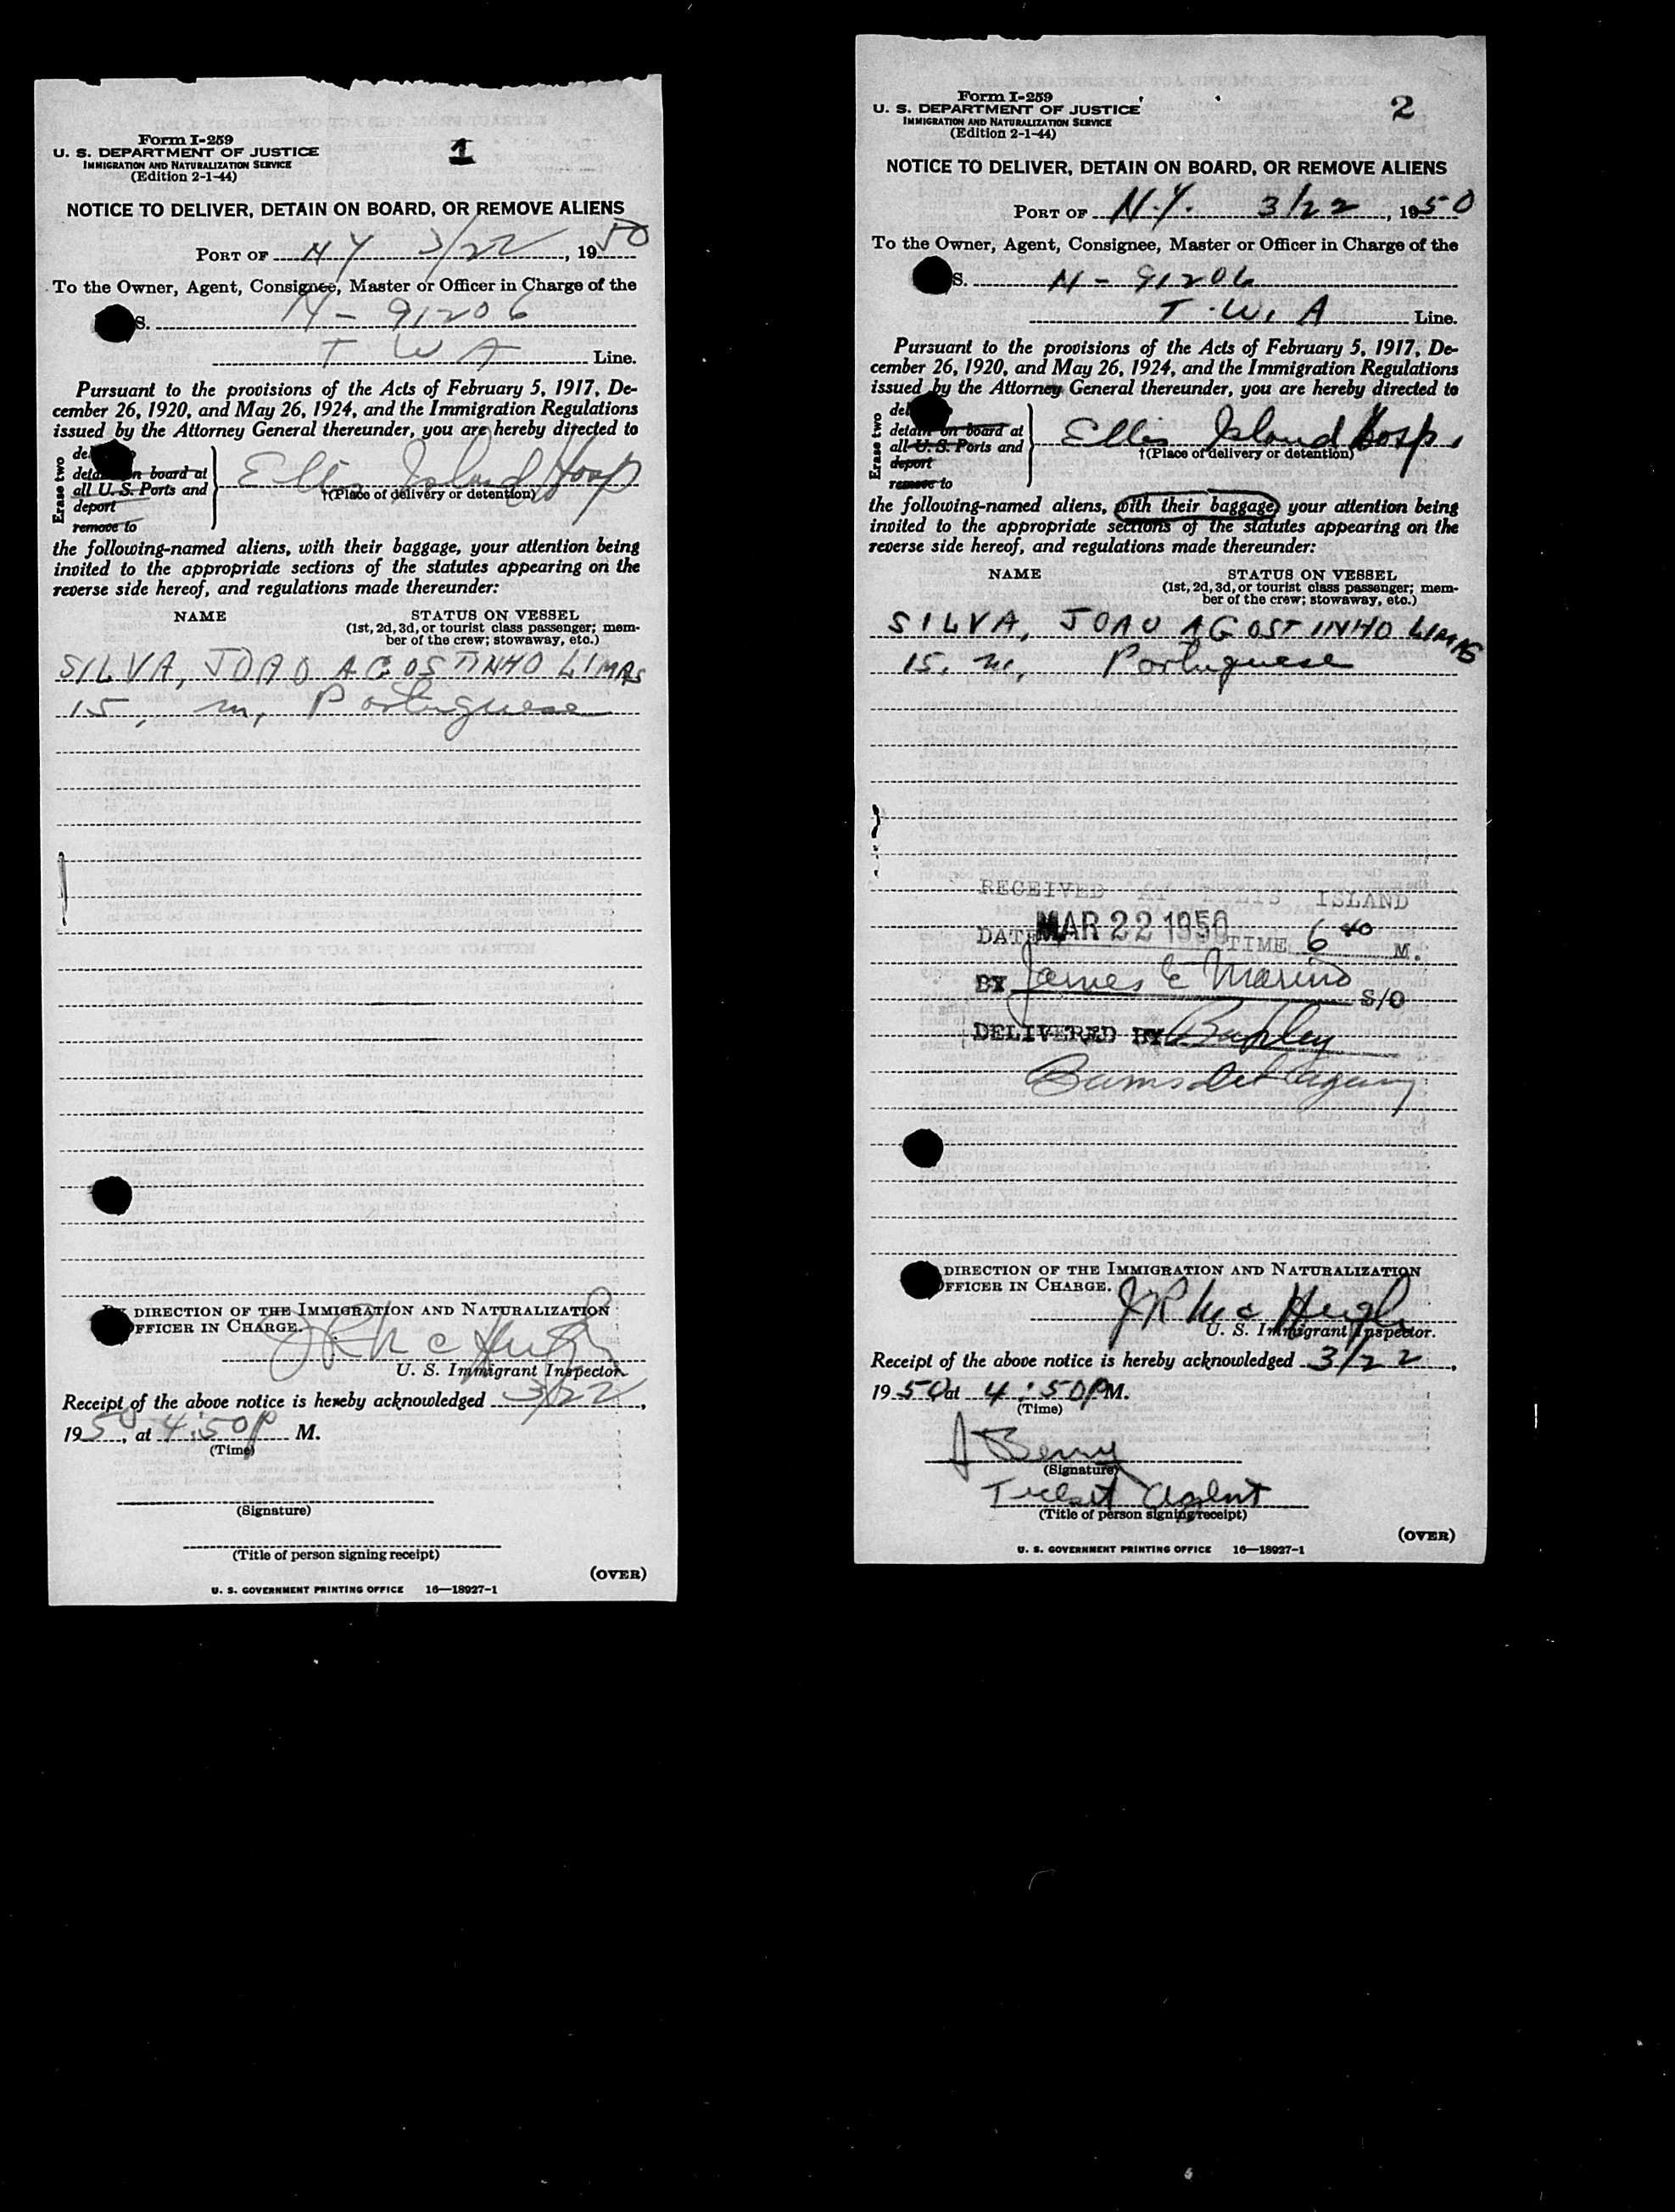 Form I-259
U. S. DEPARTMENT OF JUSTICE
IMMIGRATION AND NATURALIZATION SERVICE
(Edition 2-1-44)
1
NOTICE TO DELIVER, DETAIN ON BOARD, OR REMOVE ALIENS
PORT OF N Y 3/22, 1950
To the Owner, Agent, Consignee, Master or Officer in Charge of the
S. N - 91206
T W A Line.
Pursuant to the provisions of the Acts of February 5, 1917, De-
cember 26, 1920, and May 26, 1924, and the Immigration Regulations
issued by the Attorney General thereunder, you are hereby directed to
Erase two
detain on board at
all U. S. Ports and
deport
remove to
Ellis Island Hosp
†(Place of delivery or detention)
the following-named aliens, with their baggage, your attention being
invited to the appropriate sections of the statutes appearing on the
reverse side hereof, and regulations made thereunder:
NAME STATUS ON VESSEL
(1st, 2d, 3d, or tourist class passenger; mem-
ber of the crew; stowaway, etc.)
SILVA, JOAO AGOSTINHO LIMAS
15, m, Portuguese
BY DIRECTION OF THE IMMIGRATION AND NATURALIZATION
OFFICER IN CHARGE.
J R McHugh
U. S. Immigrant Inspector.
Receipt of the above notice is hereby acknowledged 3/22,
1950, at 4:50 P M.
(Time)
(Signature)
(Title of person signing receipt)
(OVER)
U. S. GOVERNMENT PRINTING OFFICE 16—18927-1
Form I-259
U. S. DEPARTMENT OF JUSTICE
IMMIGRATION AND NATURALIZATION SERVICE
(Edition 2-1-44)
2
NOTICE TO DELIVER, DETAIN ON BOARD, OR REMOVE ALIENS
PORT OF N.Y. 3/22, 1950
To the Owner, Agent, Consignee, Master or Officer in Charge of the
S. N - 91206
T. W. A Line.
Pursuant to the provisions of the Acts of February 5, 1917, De-
cember 26, 1920, and May 26, 1924, and the Immigration Regulations
issued by the Attorney General thereunder, you are hereby directed to
Erase two
detain on board at
all U. S. Ports and
deport
remove to
Ellis Island Hosp.
†(Place of delivery or detention)
the following-named aliens, with their baggage, your attention being
invited to the appropriate sections of the statutes appearing on the
reverse side hereof, and regulations made thereunder:
NAME STATUS ON VESSEL
(1st, 2d, 3d, or tourist class passenger; mem-
ber of the crew; stowaway, etc.)
SILVA, JOAO AGOSTINHO LIMAS
15, m, Portuguese
RECEIVED AT ELLIS ISLAND
DATE MAR 22 1950 TIME 6 40 M.
BY James E Marino S/O
DELIVERED BY
BY DIRECTION OF THE IMMIGRATION AND NATURALIZATION
OFFICER IN CHARGE.
J R McHugh
U. S. Immigrant Inspector.
Receipt of the above notice is hereby acknowledged 3/22,
1950 at 4:50 P M.
(Time)
J Berry
(Signature)
Ticket Agent
(Title of person signing receipt)
(OVER)
U. S. GOVERNMENT PRINTING OFFICE 16—18927-1